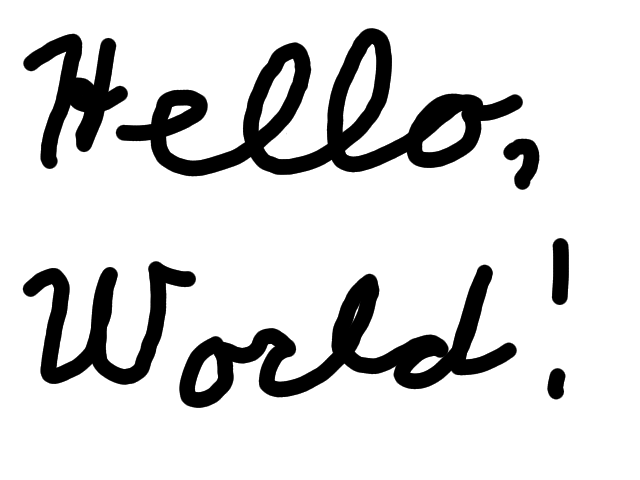 Hello,
World!